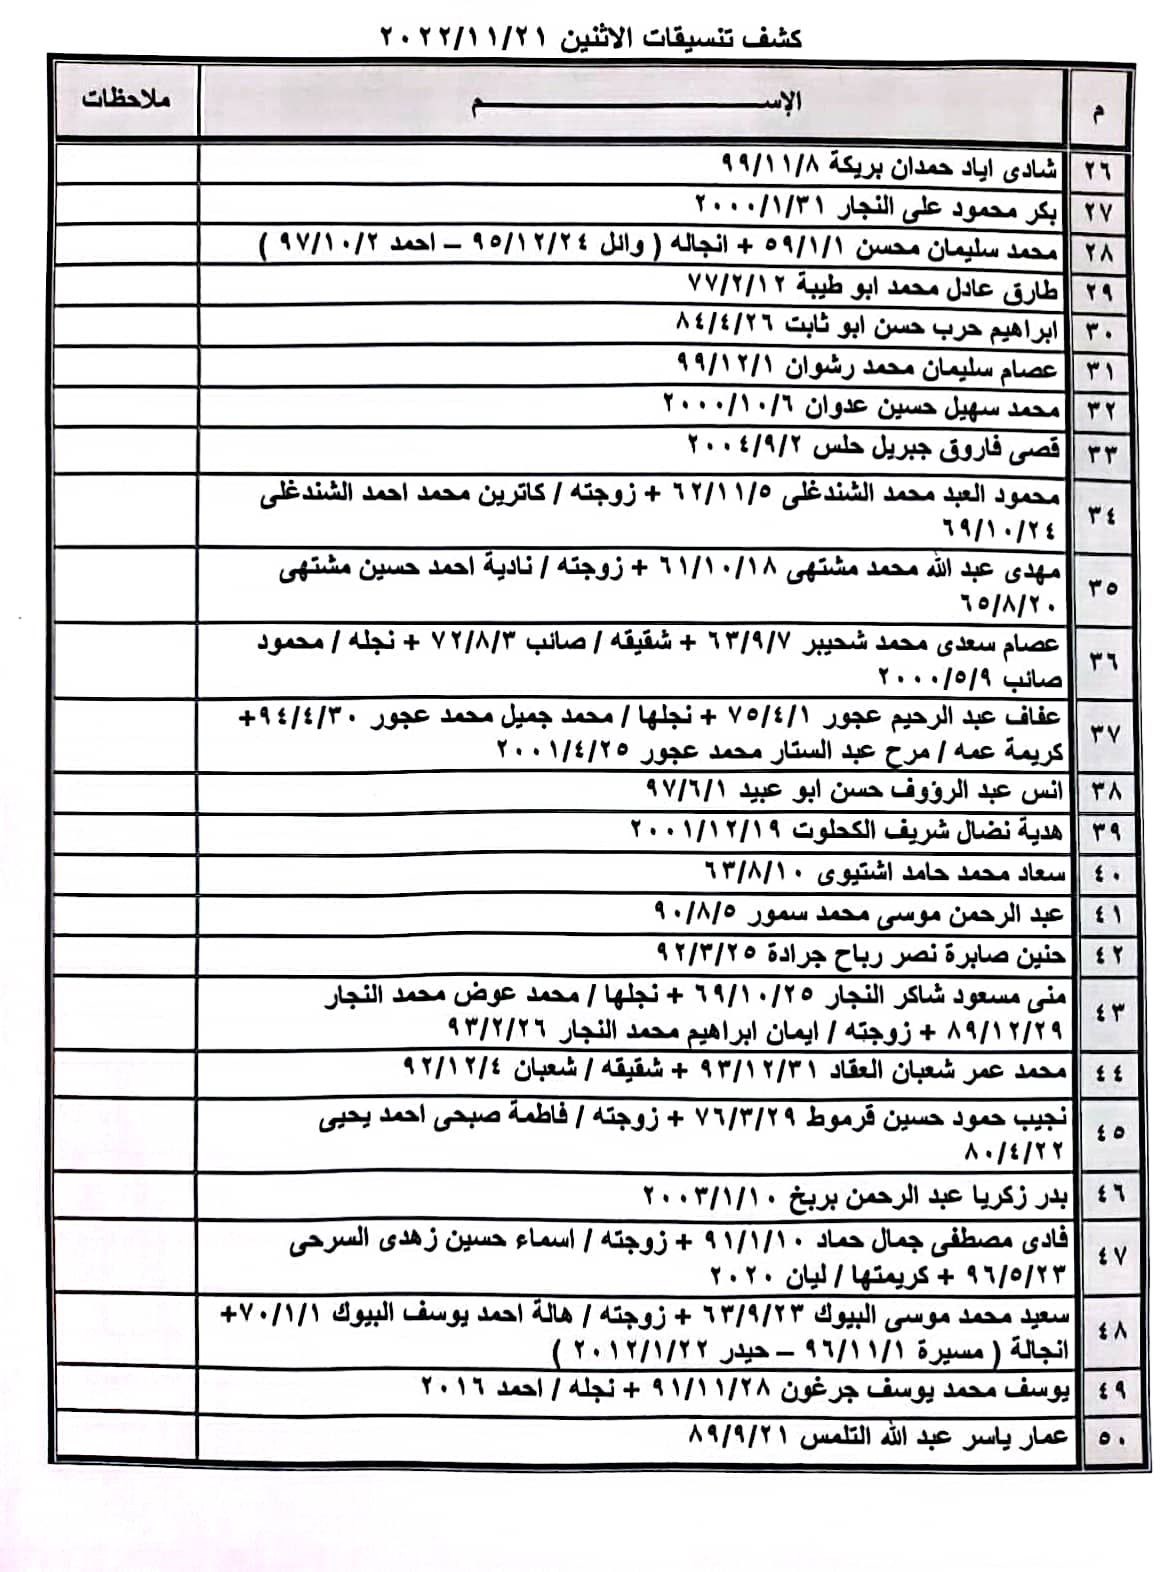 كشف تنسيقات الاثنين ٢٠٢٢/١١/٢١
م الإســـــــــم ملاحظات
٢٦ شادى اياد حمدان بريكة ٩٩/١١/٨
٢٧ بكر محمود على النجار ٢٠٠٠/١/٣١
٢٨ محمد سليمان محسن ٥٩/١/١ + انجاله ( وائل ٩٥/١٢/٢٤ – احمد ٩٧/١٠/٢ )
٢٩ طارق عادل محمد ابو طيبة ٧٧/٢/١٢
٣٠ ابراهيم حرب حسن ابو ثابت ٨٤/٤/٢٦
٣١ عصام سليمان محمد رشوان ٩٩/١٢/١
٣٢ محمد سهيل حسين عدوان ٢٠٠٠/١٠/٦
٣٣ قصى فاروق جبريل حلس ٢٠٠٤/٩/٢
٣٤ محمود العبد محمد الشندغلى ٦٢/١١/٥ + زوجته / كاترين محمد احمد الشندغلى
٦٩/١٠/٢٤
٣٥ مهدى عبد الله محمد مشتهى ٦١/١٠/١٨ + زوجته / نادية احمد حسين مشتهى
٦٥/٨/٢٠
٣٦ عصام سعدى محمد شحيبر ٦٣/٩/٧ + شقيقه / صائب ٧٢/٨/٣ + نجله / محمود
صائب ٢٠٠٠/٥/٩
٣٧ عفاف عبد الرحيم عجور ٧٥/٤/١ + نجلها / محمد جميل محمد عجور ٩٤/٤/٣٠+
كريمة عمه / مرح عبد الستار محمد عجور ٢٠٠١/٤/٢٥
٣٨ انس عبد الرؤوف حسن ابو عبيد ٩٧/٦/١
٣٩ هدية نضال شريف الكحلوت ٢٠٠١/١٢/١٩
٤٠ سعاد محمد حامد اشتيوى ٦٣/٨/١٠
٤١ عبد الرحمن موسى محمد سمور ٩٠/٨/٥
٤٢ حنين صابرة نصر رباح جرادة ٩٢/٣/٢٥
٤٣ منى مسعود شاكر النجار ٦٩/١٠/٢٥ + نجلها / محمد عوض محمد النجار
٨٩/١٢/٢٩ + زوجته / ايمان ابراهيم محمد النجار ٩٣/٢/٢٦
٤٤ محمد عمر شعبان العقاد ٩٣/١٢/٣١ + شقيقه / شعبان ٩٢/١٢/٤
٤٥ نجيب حمود حسين قرموط ٧٦/٣/٢٩ + زوجته / فاطمة صبحى احمد يحيى
٨٠/٤/٢٢
٤٦ بدر زكريا عبد الرحمن بربخ ٢٠٠٣/١/١٠
٤٧ فادى مصطفى جمال حماد ٩١/١/١٠ + زوجته / اسماء حسين زهدى السرحى
٩٦/٥/٢٣ + كريمتها / ليان ٢٠٢٠
٤٨ سعيد محمد موسى البيوك ٦٣/٩/٢٣ + زوجته / هالة احمد يوسف البيوك ٧٠/١/١+
انجالة ( مسيرة ٩٦/١١/١ – حيدر ٢٠١٢/١/٢٢ )
٤٩ يوسف محمد يوسف جرغون ٩١/١١/٢٨ + نجله / احمد ٢٠١٦
٥٠ عمار ياسر عبد الله التلمس ٨٩/٩/٢١